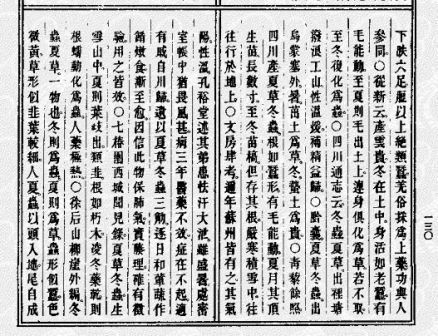 下肢六足屜以上絕類蠶羌俗採為上藥功與人
參同○從新云產雲貴冬在土中身活如老蠶有
毛能動至夏則毛出土上連身俱化為草若不取
至冬復化為蟲○四川通志云冬蟲夏草出裡塘
撥浪工山性溫煖補精益髓○黔囊夏草冬蟲出
烏蒙塞外暑茁土為草冬蟄土為蟲○青藜餘照
四川產夏草冬蟲根如蠶形有毛能動夏月其頂
生苗長數寸至冬苗槁但存其根嚴寒積雪中往
往行於地上○文房肆考邇年蘇州皆有之其氣
陽性溫孔裕堂述其弟患怯汗大泄雖盛暑處密
室帳中猶畏風甚病三年醫藥不效症在不起適
有戚自川歸遺以夏草冬蟲三觔逐日和葷蔬作
餚燉食漸至愈因信此物保肺氣實腠理確有徵
驗用之皆效○七椿園西域聞見錄夏草冬蟲生
雪山中夏則葉歧出類韭根如朽木凌冬葉乾則
根蠕動化為蟲入藥極熱○徐后山柳崖外編冬
蟲夏草一物也冬則為蟲夏則為草蟲形似蠶色
微黃草形似韭葉較細入夏蟲以頭入地尾自成
一三〇